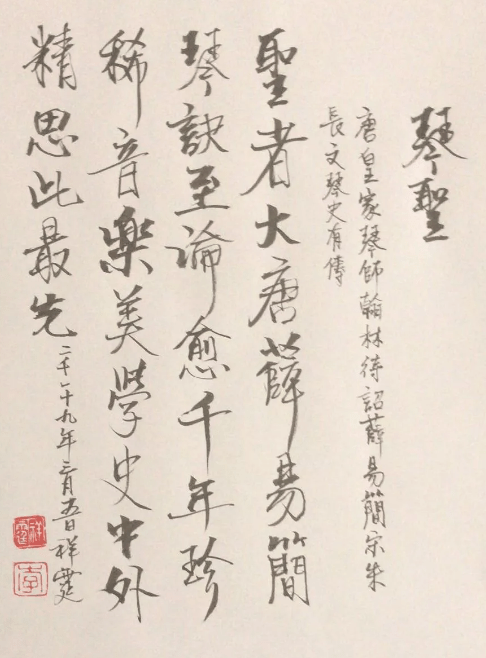 琴聖
唐皇家琴師翰林待詔薛易簡宋朱
長文琴史有傳
聖者大唐薛易簡
琴訣至論愈千年珍
稀音樂美學史中外
精思此最先
二千十九年二月五日祥霆